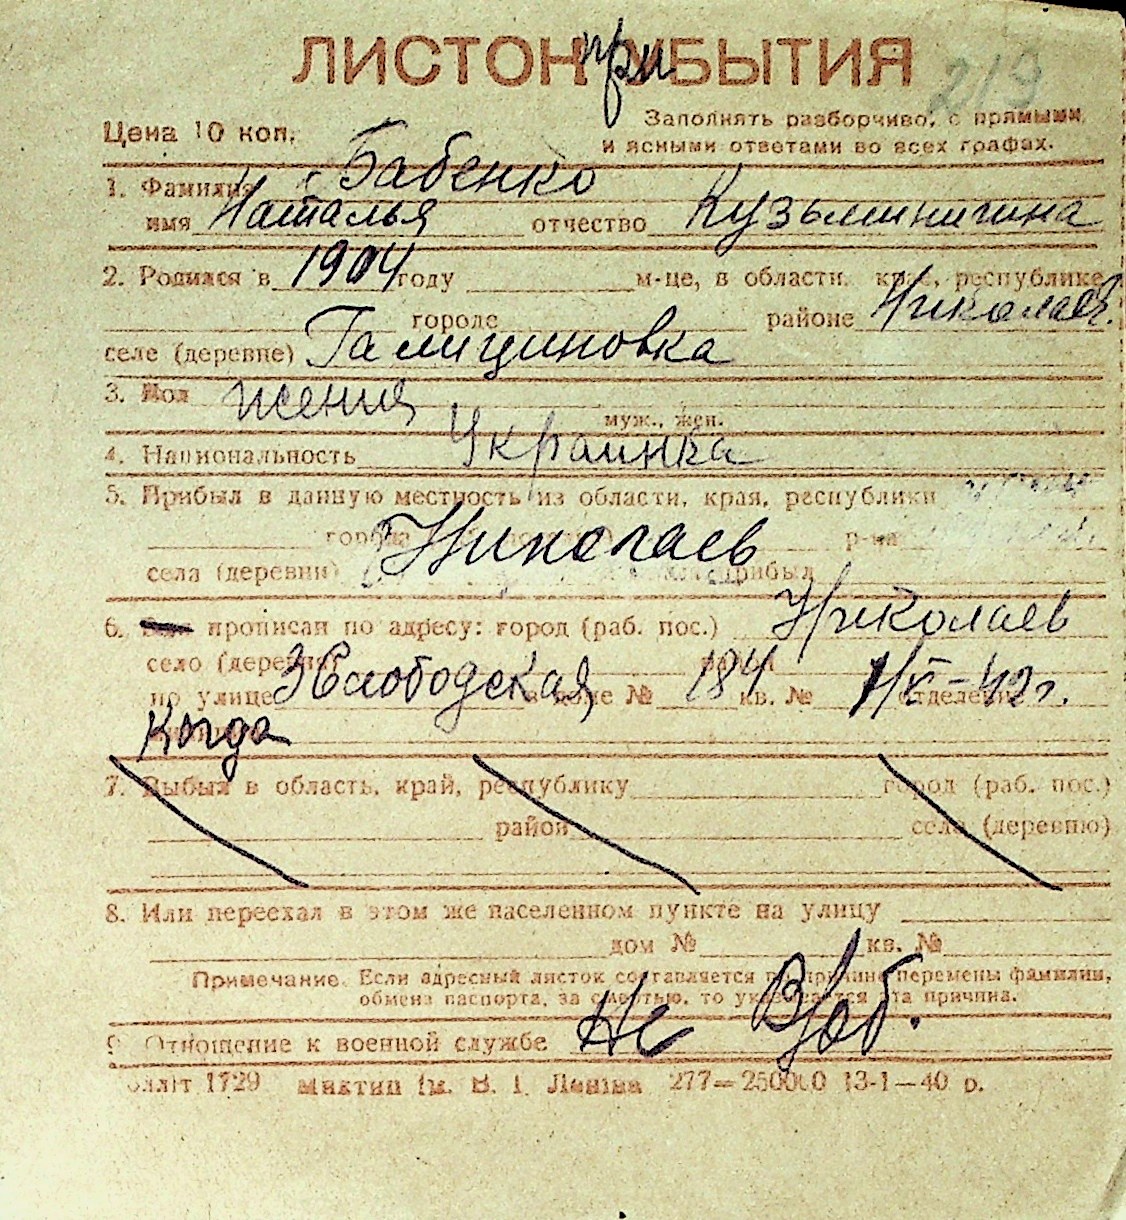 ЛИСТОК при УБЫТИЯ
219
Цена 10 коп.
Заполнять разборчиво, с прямыми
и ясными ответами во всех графах.
1. Фамилия Бабенко
имя Наталья отчество Кузьминична
2. Родился в 1904 году м-це, в области, край, республике
городе районе Николаев.
селе (деревне) Галициновка
3. Пол жения
муж., жен.
4. Национальность Украинка
5. Прибыл в данную местность из области, края, республики
города Николаев р-на
села (деревни) прибыл
6. прописан по адресу: город (раб. пос.) Николаев
село (деревня)
по улице 3 Слободская в доме № 184 кв. № отделения 1/IX-42 г.
Когда
7. Выбыл в область, край, республику город (раб. пос.)
район село (деревню)
8. Или переехал в этом же населенном пункте на улицу
дом № кв. №
Примечание. Если адресный листок составляется по причине перемены фамилии,
обмена паспорта, за смертью, то указывается эта причина.
9. Отношение к военной службе Не В/об.
1729 Миктип ім. В. І. Леніна 277—250000 13-1—40 р.